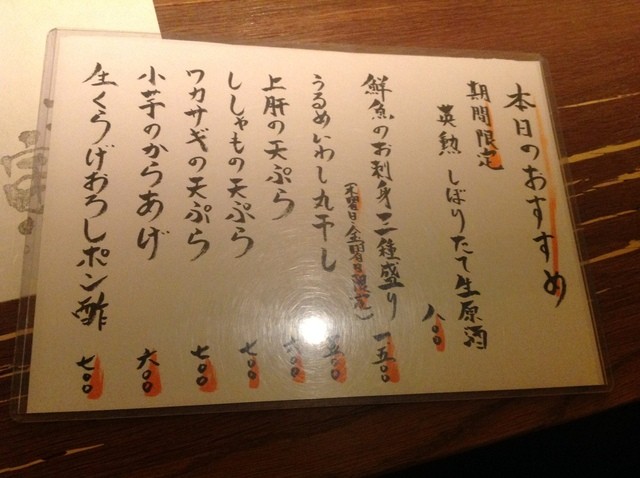 本日のおすすめ
期間限定
英勲 しぼりたて生原酒
八〇〇
鮮魚のお刺身三種盛り 一五〇〇
(木曜日・金曜日限定)
うるめいわし丸干し 五〇〇
上肝の天ぷら 六〇〇
ししゃもの天ぷら 七〇〇
ワカサギの天ぷら 七〇〇
小芋のからあげ 六〇〇
生くらげおろしポン酢 七〇〇